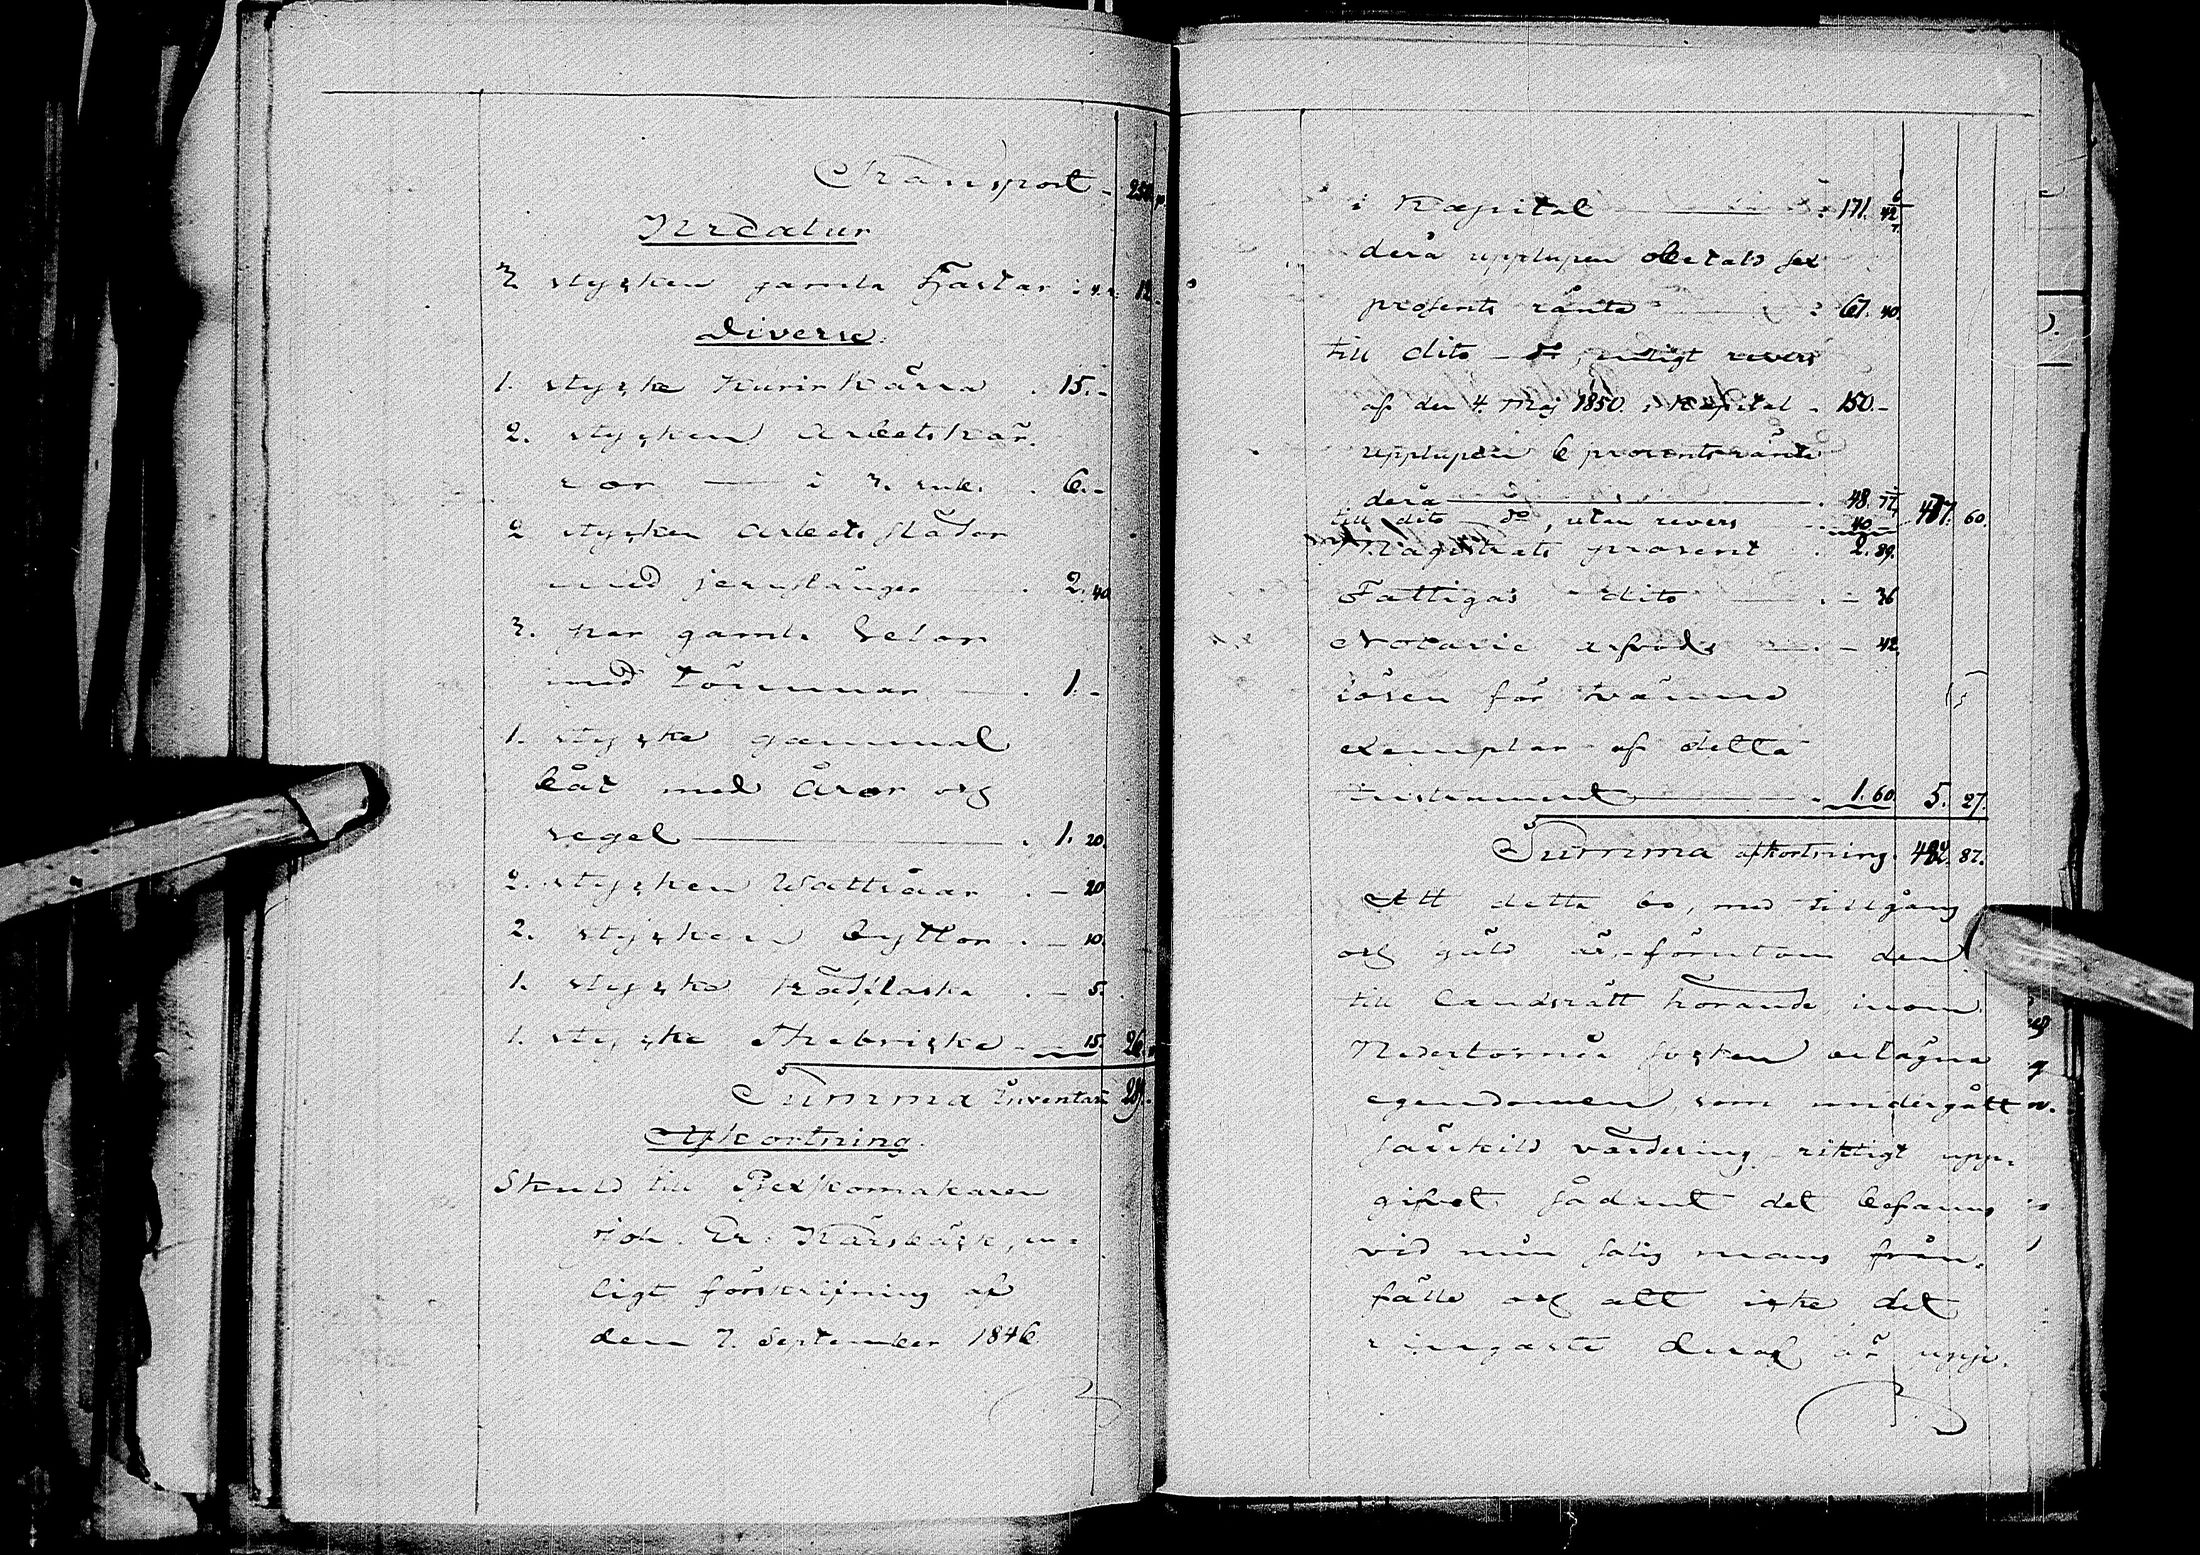 Transport - 250.
Kreatur
3 stycken gamla Hästar à 4. r. 12.
Diverse.
1. stycke Kurirkärra . 15. -
2. stycken Arbetskär-
ror — à 3. rub. . 6. -
2 stycken Arbets slädor
med jernstänger — . 2. 40
3. par gamla Selar
med tömmar — . 1. -
1. stycke gammal
båt med åror och
segel — . 1. 20.
2. stycken Wattusåar . - 20
2. stycken byttor . - 10.
1. stycke trädflaska . - 5.
1. stycke Thebricka - - 15. 26.
Summa Inventarii 289.
Afkortning.
Skuld till Beckkomakaren
Joh. Er. Kårsbäck, en-
ligt förskrifning af
den 7. September 1846
i Kapital — : 171. 42 6/7
derå upplupen obetald sex
prosents ränta — : 67. 40.
till dito - do, enligt revers
af den 4. Maj 1850. i Kapital - 150. -
upplupen 6 procents ränta
derå — . 48. 77 1/7
till dito - do, utan revers - 40 - 477. 60.
Magistrats prosent . 2. 89.
Fattigas dito — . - 36
Notarie arfvode — . - 42.
lösen för tvänne
exemplar af detta
instrument — . 1. 60. 5. 27.
Summa afkortning. 482. 87.
Att detta bo, med tillgång
och gäld är, förutom den
till landsrätt hörande, inom
Nedertorneå socken belägna
egendomen, som undergått
särskild värdering, riktigt upp-
gifvet sådant det befanns
vid min salig mans från-
fälle och att icke det
ringaste deraf är upp-